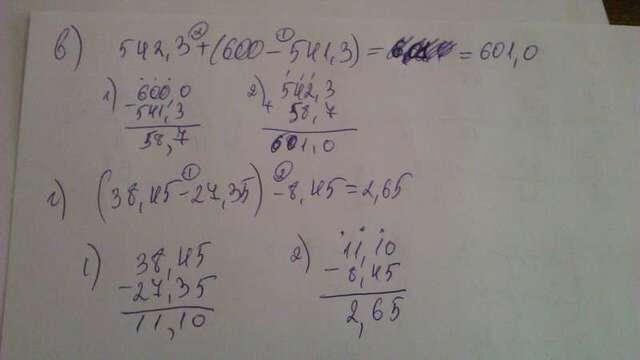 в) 542,3 + (600 - 541,3) = = 601,0
② ①
1) 600 0
- 541,3
58,7
2) 542,3
+ 58,7
601,0
г) (38,45 - 27,35) - 8,45 = 2,65
① ②
1) 38,45
- 27,35
11,10
2) 11,10
- 8,45
2,65